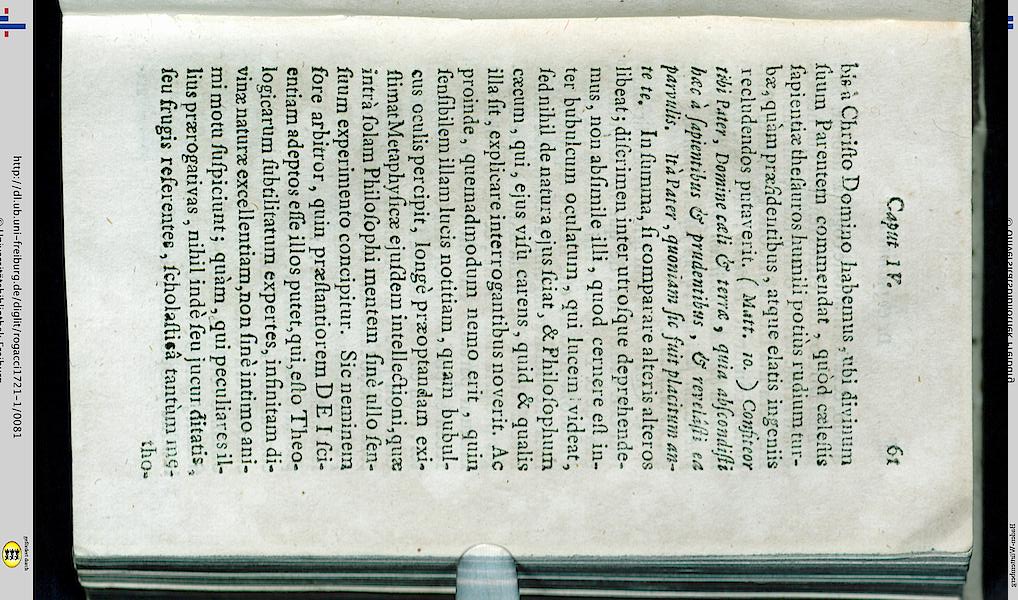 Caput IV. 61
bis à Chriſto Domino habemus, ubi divinum
ſuum Parentem commendat, quòd cæleſtis
ſapientiæ theſauros humili potiùs rudium tur-
bæ, quàm præfidentibus, atque elatis ingeniis
recludendos putaverit. (Matt. 10.) Confiteor
tibi Pater, Domine cæli & terræ, quia abſcondiſti
hæc à ſapientibus & prudentibus, & revelaſti ea
parvulis. Ità Pater, quoniam ſic fuit placitum an-
te te. In ſumma, ſi comparare alteris alteros
libeat; diſcrimen inter utroſque deprehende-
mus, nòn abſimile illi, quod cernere eſt in-
ter bubulcum oculatum, qui lucem videat,
ſed nihil de natura ejus ſciat, & Philoſophum
cæcum, qui, ejus viſu carens, quid & qualis
illa ſit, explicare interrogantibus noverit. Ac
proinde, quemadmodum nemo erit, quin
ſenſibilem illam lucis notitiam, quam bubul-
cus oculis percipit, longè præoptandam exi-
ſtimat Metaphyſicæ ejuſdem intellectioni, quæ
intrà ſolam Philoſophi mentem ſinè ullo ſen-
ſuum experimento concipitur. Sic neminem
fore arbitror, quin præſtantiorem DEI ſci-
entiam adeptos eſſe illos putet, qui, eſto Theo-
logicarum ſubtilitatum expertes, infinitam di-
vinæ naturæ excellentiam, non ſinè intimo ani-
mi motu ſuſpiciunt; quàm, qui peculiares il-
lius prærogativas, nihil indè ſeu jucunditatis,
ſeu frugis referentes, ſcholaſticâ tantùm me-
tho-
http://dl.ub.uni-freiburg.de/diglit/rogacci1721-1/0081
© Universitätsbibliothek Freiburg
gefördert durch